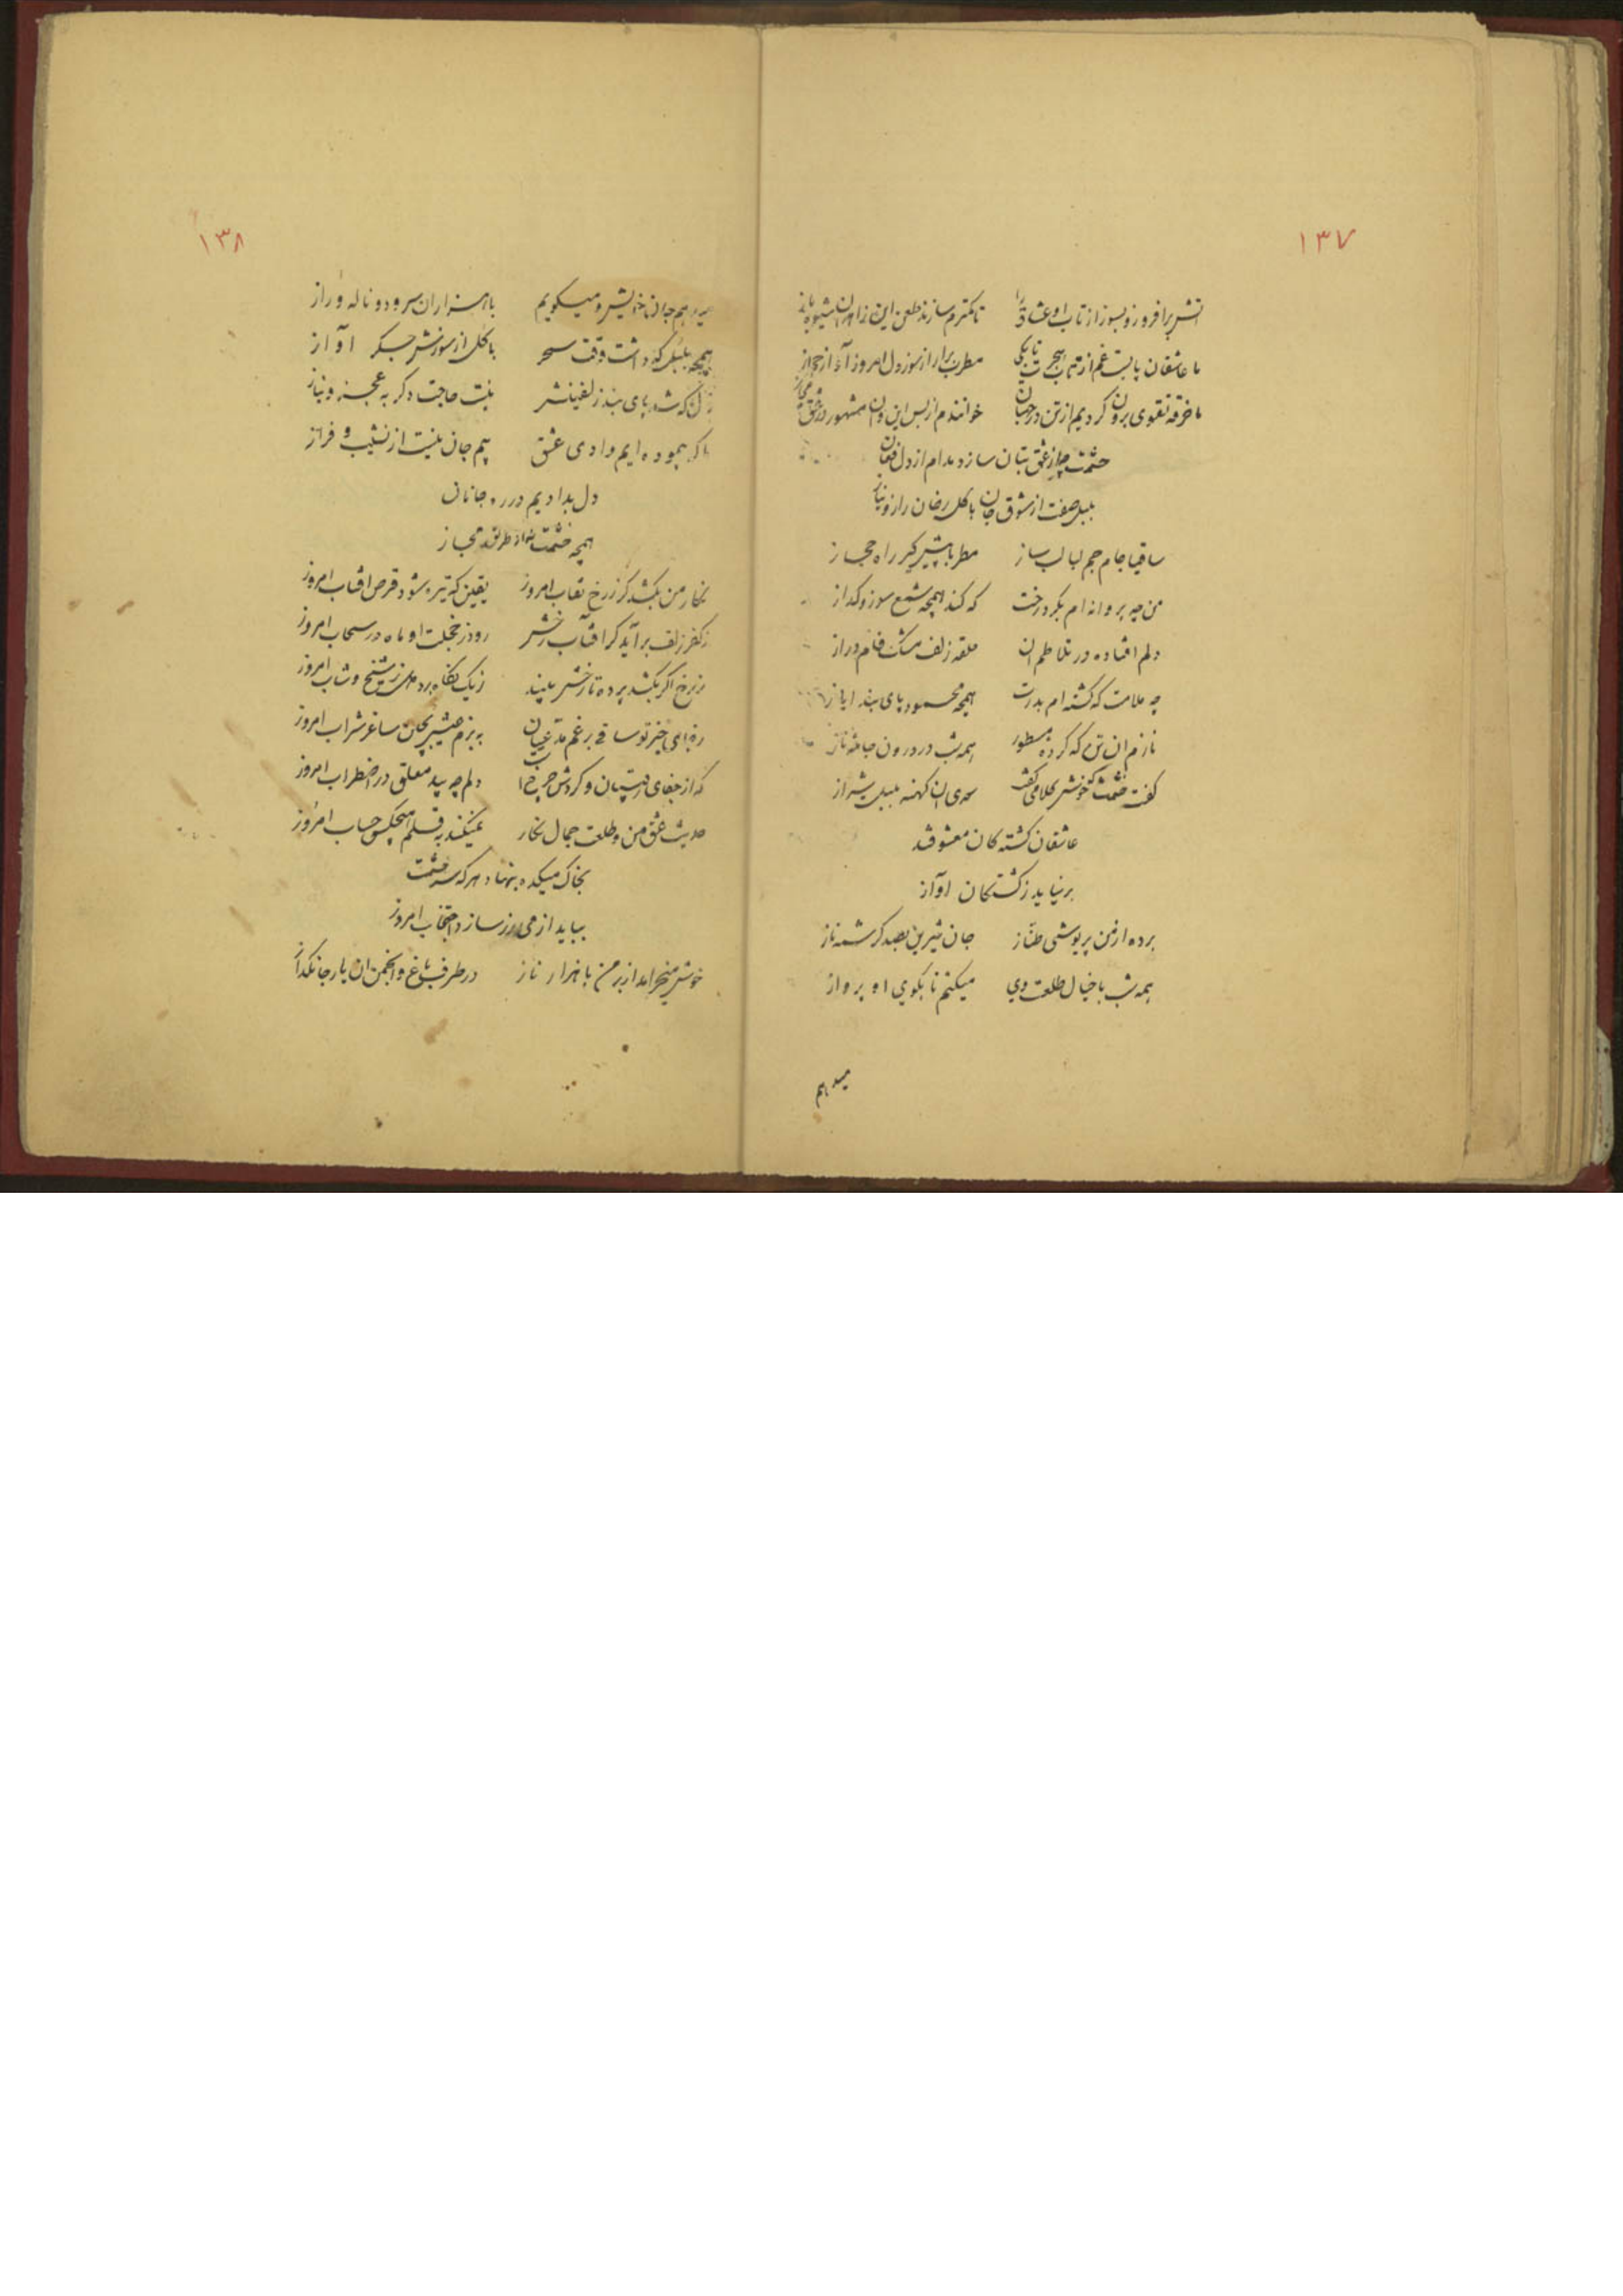 ۱۳۷
اتش برافروز و بسوز از تاب او عشاق را تا کمترم سازند طعن این زاهدان شیوه باز
ما عاشقان پابست غم از تاب هجرت تا بکی مطرب برار از سوز دل امروز آواز حجاز
ما خرقه تقوی برون کردیم از تن در جهان خوانندم از بس این و ان مشهور در عشق مجاز
حشمت چو از عشق بتان سازد مدام از دل فغان
بلبل صفت از شوق جان با گل رخان راز و نیاز
ساقیا جام جم لبالب ساز مطربا پیش گیر راه حجاز
من چه پروانه ام بگرد رخت که کند همچه شمع سوز و گداز
دلم افتاده در تلاطم ان حلقه زلف مشک فام دراز
چه ملامت که گشته ام بدرت همچه محمود پای بند ایاز
نازم ان تن که کرده مسطور همه شب در درون جامه ناز
گفت حشمت خوش کلامی گفت سعدی ان کهنه بلبل شیراز
عاشقان کشته کان معشوقند
برنیاید زکشتکان اواز
برده از من پریوشی طناز جان شیرین بصد کرشمه ناز
همه شب با خیال طلعت وی میکنم تا بکوی او پرواز
میدهم
۱۳۸
میدهم جان خویش و میکویم با هزاران سرود و ناله و راز
همچه بلبل که داشت وقت سحر با گل از سوزش جگر اواز
دل که شد پای بند زلفینش نیست حاجت دگر به عجز و نیاز
ما که پیموده ایم وادی عشق بیم جان نیست از نشیب و فراز
دل بدادیم در ره جانان
همچه حشمت طریق مجاز
نگار من بکشد گر زرخ نقاب امروز یقین که تیره شود قرص افتاب امروز
ز کفر زلف برآید گر افتاب رخش رود ز خجلت او ماه در سحاب امروز
ز رخ اگر بکشد پرده تا رخش بیند ز یک نگاه برد شیخ و شاب امروز
خیز تو ساقی برغم مدعیان به بزم عیش بچان ساغر شراب امروز
که از جفای رقیبان و کردش چرخ دلم چه بید معلق در اضطراب امروز
حدیث عشق من و طلعت جمال نگار نمیکند به قلم هیچکس حساب امروز
بخاک میکده بنهاد هر که سر حشمت
بباید از می سازد اجتناب امروز
خوش میخرامد از بر من با هزار ناز در طرف باغ و انجمن ان یار جانگداز